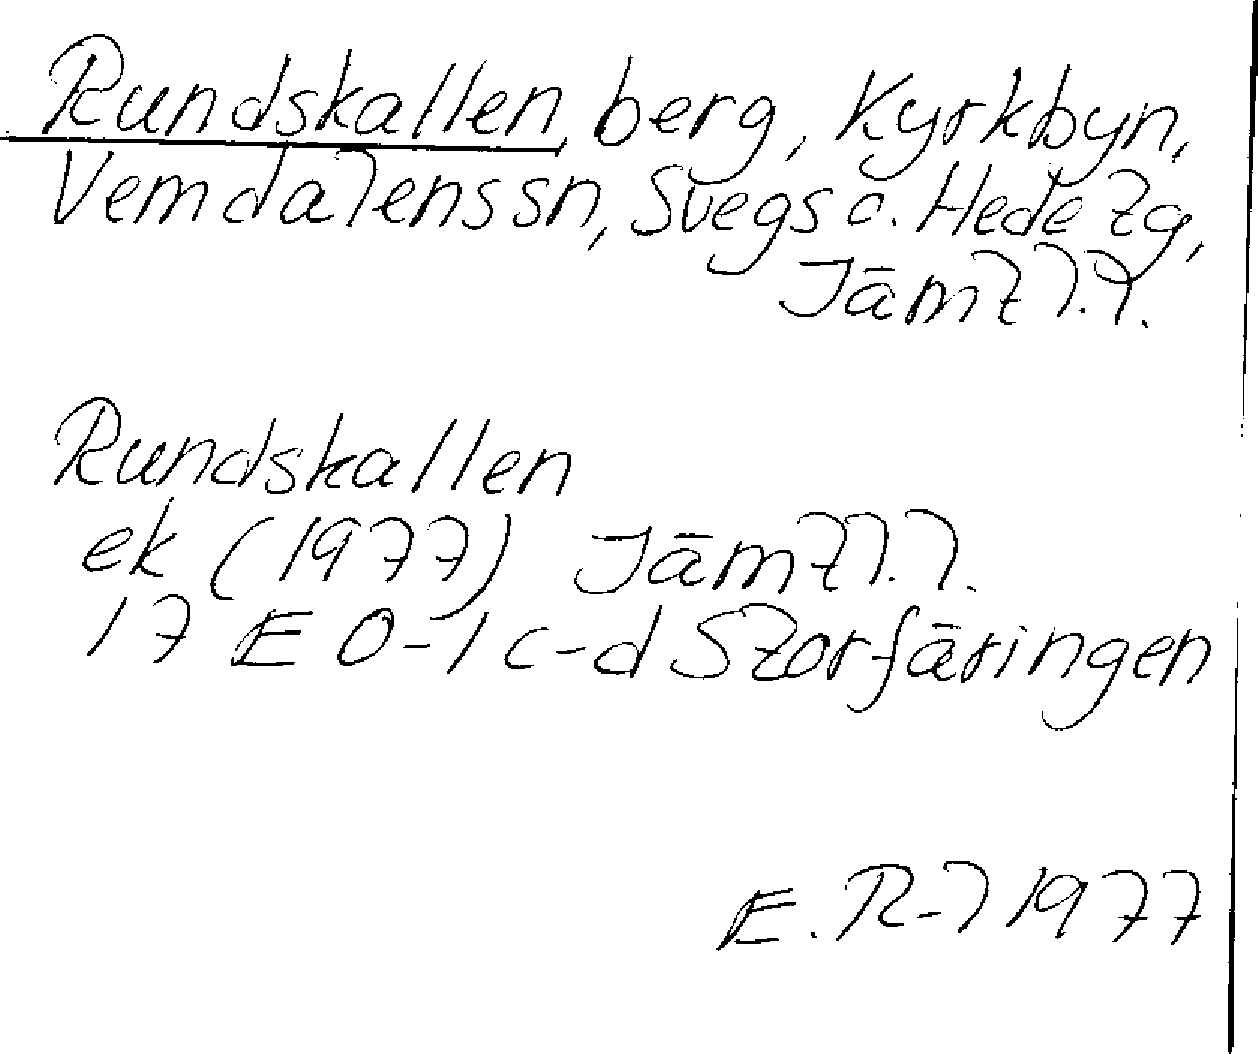 Rundskallen, berg, Kyrkbyn,
Vemdalens sn, Svegs o. Hede tg,
Jämtl. l.
Rundskallen
ek (1977) Jämtl. l.
17 E 0-1 c-d Storfäringen
E. R-l 1977